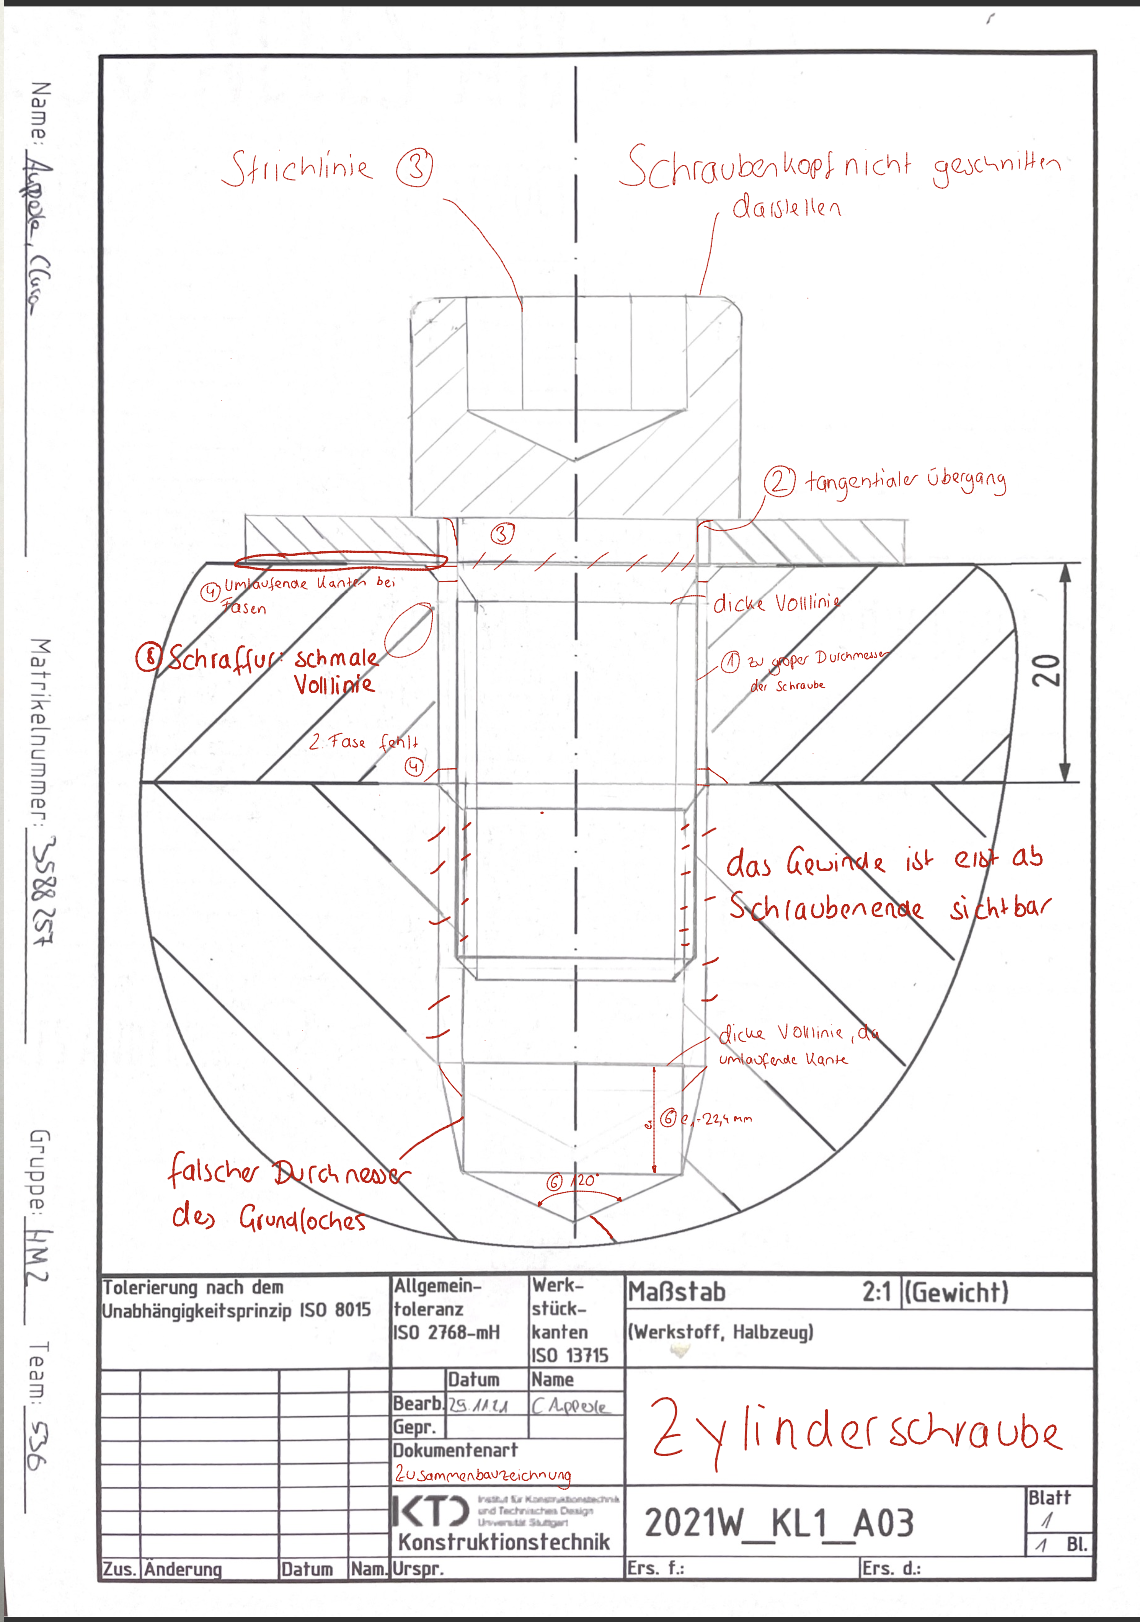 Name: Appele, Clara
Matrikelnummer: 3588257
Gruppe: HM2 Team: 536
Strichlinie ③
Schraubenkopf nicht geschnitten
darstellen
② tangentialer Übergang
③
④ Umlaufende Kanten bei
Fasen
dicke Volllinie
⑧ Schraffur: schmale
Volllinie
① zu großer Durchmesser
der Schraube
20
2. Fase fehlt
④
das Gewinde ist erst ab
Schraubenende sichtbar
dicke Volllinie, da
umlaufende Kante
⑥ e₁=22,4 mm
falscher Durchmesser
des Grundloches
⑥ 120°
Tolerierung nach dem
Unabhängigkeitsprinzip ISO 8015
Allgemein-
toleranz
ISO 2768-mH
Werk-
stück-
kanten
ISO 13715
Maßstab 2:1 (Gewicht)
(Werkstoff, Halbzeug)
Datum Name
Bearb. 29.11.21 C Appele
Gepr.
Dokumentenart
Zusammenbauzeichnung
Zylinderschraube
KTD Institut für Konstruktionstechnik
und Technisches Design
Universität Stuttgart
Konstruktionstechnik
2021W_KL1_A03
Blatt
1
1 Bl.
Zus. Änderung Datum Nam. Urspr. Ers. f.: Ers. d.: